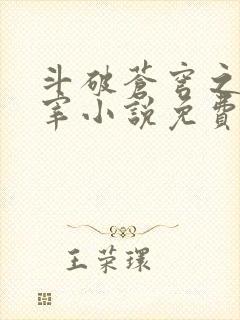 斗破蒼穹之
宰小說免費
王荣環